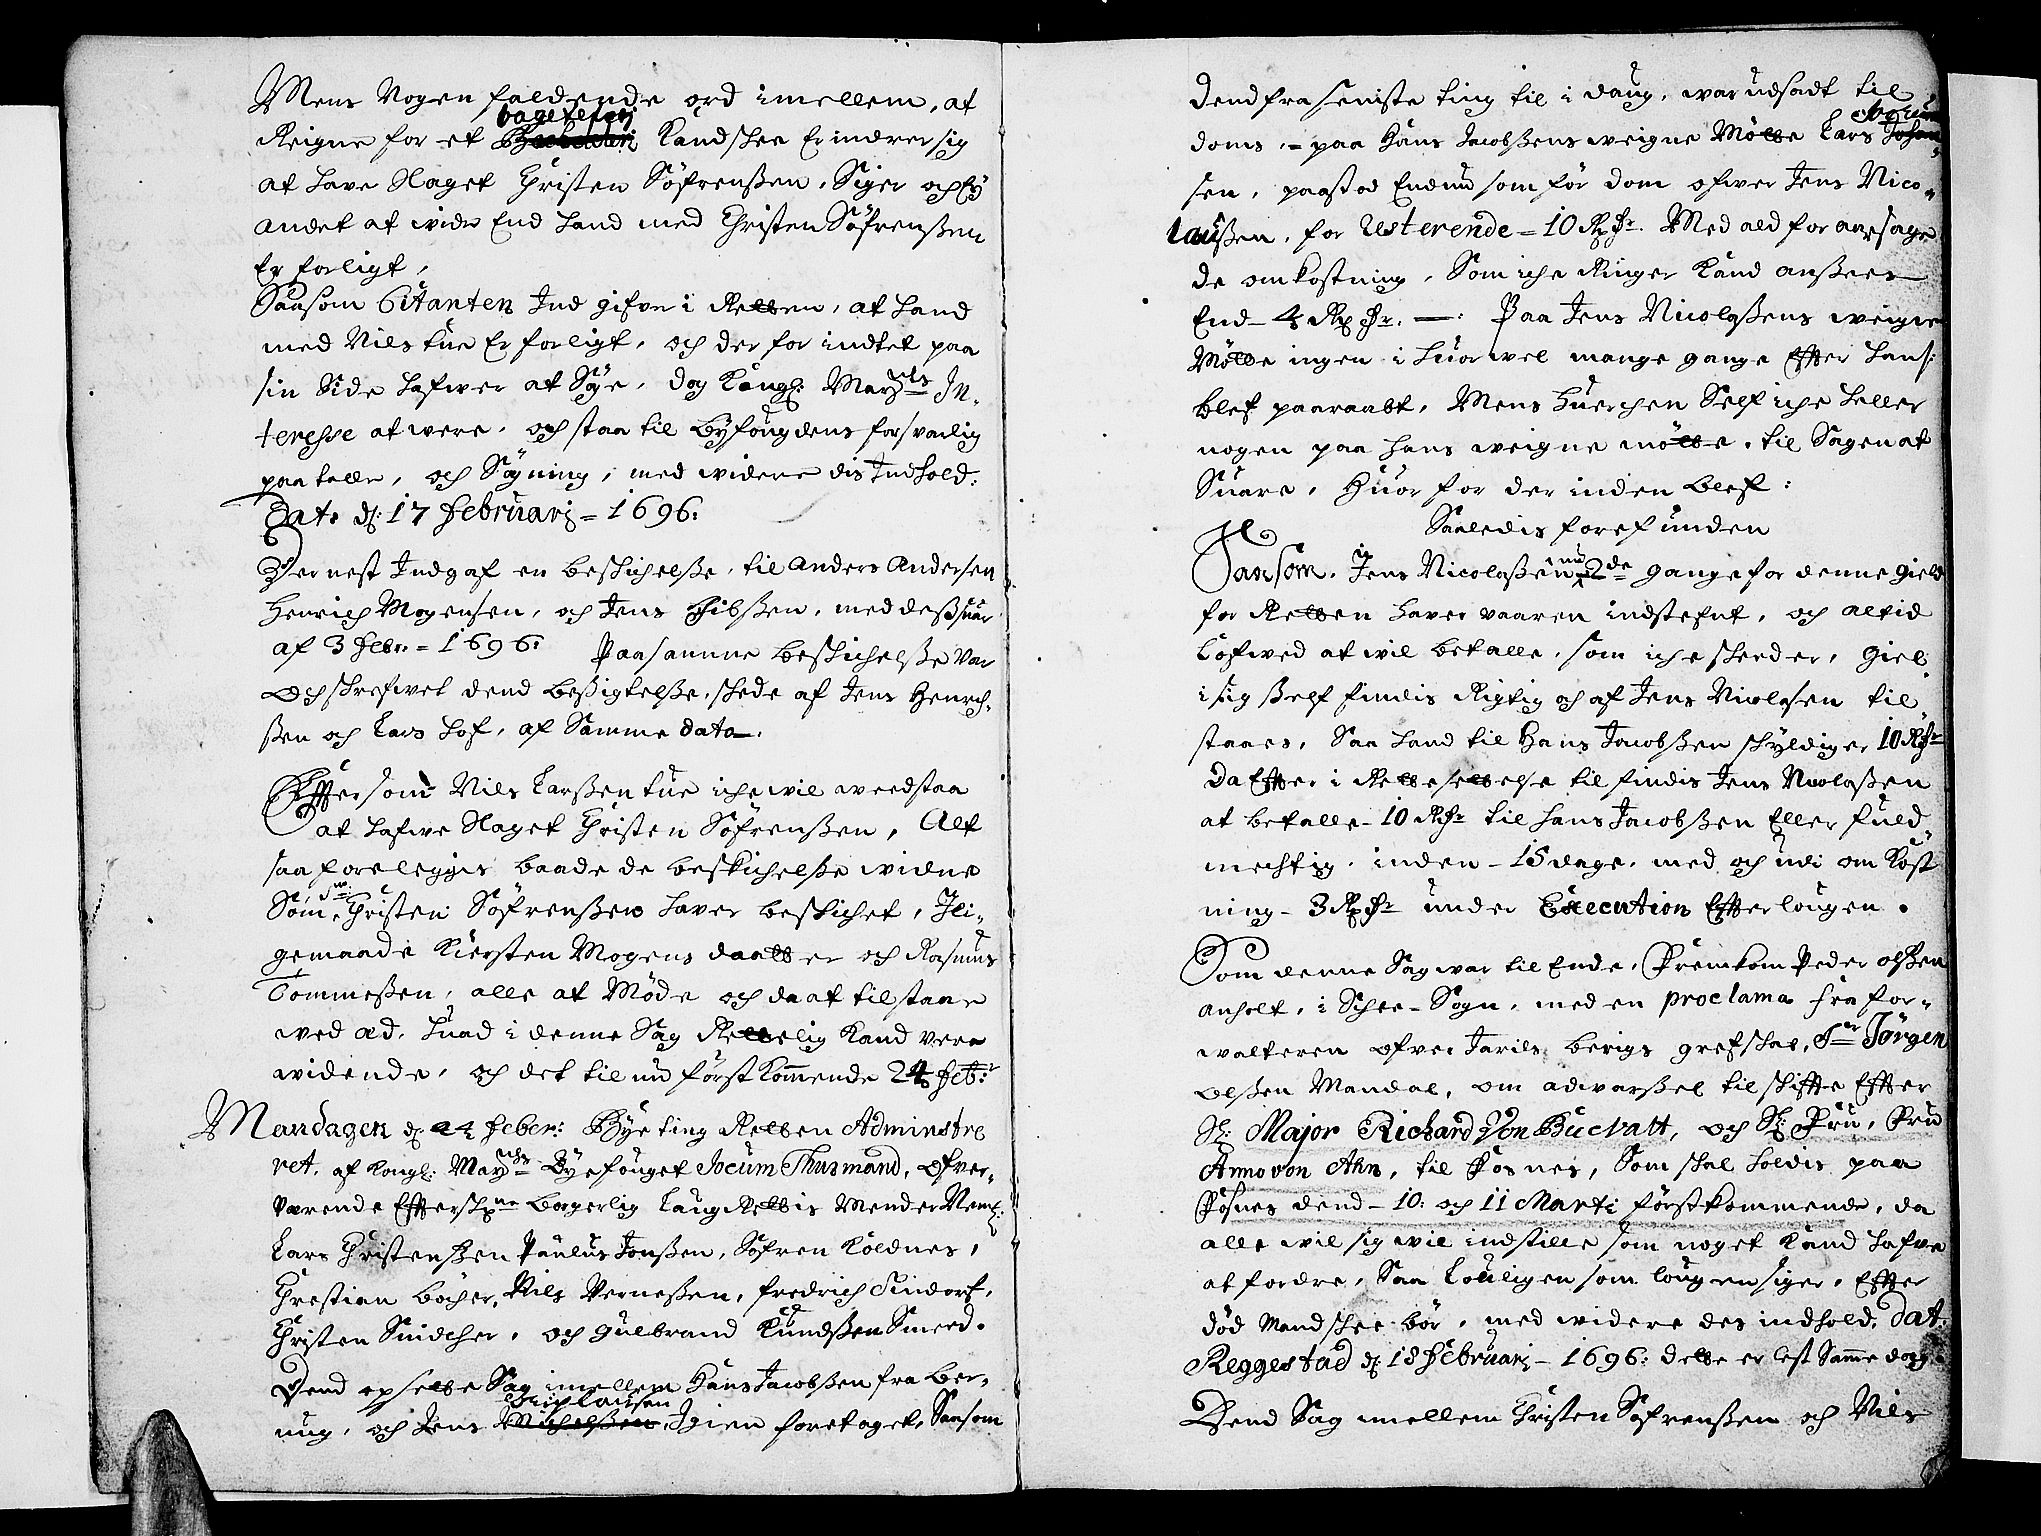 Mens Nogen faldende ord imellem, at
bagtelerj
Reigne for et Kand skee Erindrer sig
at have Slaget Christen Söfrenßen, Siger och Ey
andet at vide End hand med Christen Söfrenßen
Er forligt,
Saasom Citanten Ind gifver i Retten, at hand
med Nils tue Er forligt, och der for indtet paa
sin Side hafwer at Sige, dog Kongl: Mayts In,
teresse at were, och staa til byfougdens forsvarlig
paa talle, och Sögning, med widere dis Indhold:
Dat: d: 17 Februarj = 1696:
Dernest Indgaf en beskichelße, til Anders Andersen
Henrich Mogensen, och Jens Hibßen, med deßsuar
af 3 Febr. = 1696: Paa samme beskichelße var
Och skrefwet dend beßigtelße, skede af Jens Henrch,
ßen och Lars Lof, af Samme dato.
Effter som Nils Larßen tue iche wil weedstaa
at hafwe Slaget Christen Söfrenßen, Alt
saa forelegges baade de beskichelße widne
Som Sr: Christen Söfrenßen haver beskichet, Ili,
gemaade Kiersten Mogens daatter och Rasmus
Tommeßen, alle at Møde och da at tilstaae
wed æd, huad i denne Sag Rettelig Kand vere
widende, och det til nu först Kommende 24 Feb:r
Mandagen d: 24 Feber: Bÿe ting Retten Adminstre
ret, af Kongl: Mayts Bÿefouget Jocum Thurmand, Ofver,
værende Effterskne borgerlig Laug Rettis Mender Neml:
Lars Christenßen Paulus Jonßen, Söfren Koldnes,
Chrestian böcher, Nils Verneßen, fredrich Sindorf,
Christen Snidcher, och Gulbrand Kundßen Smeed.
Dend opsette Sag imellem Hans Jacobßen fra Ber,
Nicolausen
nug, och Jens Michelßen, Igien foretoget, Saasom
dend fra seniste ting til i daug, war udsadt til
doms, - paa Hans Jacobßens weigne Mötte Lars Johan
sen, paastod Endnu som för dom ofwer Jens Nico,
laußen, for Resterende = 10 Rdr. Med ald for aarsage
de omkostning, Som iche Ringer Kand anßees
End - 4 Rdr. —: Paa Jens Nicolaßens weigne
Mötte ingen i huor wel mange gange Effter hans:
blef paaraabt, Mens huerchen Self iche heller
nogen paa hans weigne mötte, til Sagen at
Suare, Huor for der inden blef:
Saaledis foref unden
Saasom, Jens Nicolaßen nu 2de gange for denne gield
for Retten haver vaaren indstefnt, och altid
Lofwed at wil betalle, som iche skeeder, giel
i sig ßelf findis Rigtig och af Jens Nicolasen til
staaes, Saa hand til Hans Jacobßen skyldiger 10 Rdr
da Effter i Rette settelse til findis Jens Nicolaßen
at betalle - 10 Rdr til hans Jacobßen Eller fuld
mechtig, inden - 15 dage, med och udi om Kost
ning - 3 Rdr under Execution Effter lougen.
Som denne Sag war til Ende, Fremkom Peder olßen
anholt, i Schee - Sogn, med en proclama fra for,
walteren ofver Jarils bergs grefskab, Sr Jörgen
Olßen Mandal, om adwarßel til skiffte Effter
Sl: Major Richard Von Buchatt, och Sl: Fru, Fru
Anno von Ahn, til Fosnes, Som skal holdis paa
Fosnes dend - 10: och 11 Marti förstkommende, da
alle wil sig wil indstille som noget Kand hafve
at fordre, Saa Louligen som lougen siger, Effter
död Mand skee bör, med widere des indhold, Dat:
Reggestad d: 18 Februarj - 1696: dette er lest Samme dag.
Dend Sag imellem Christen Söfrenßen och Nils